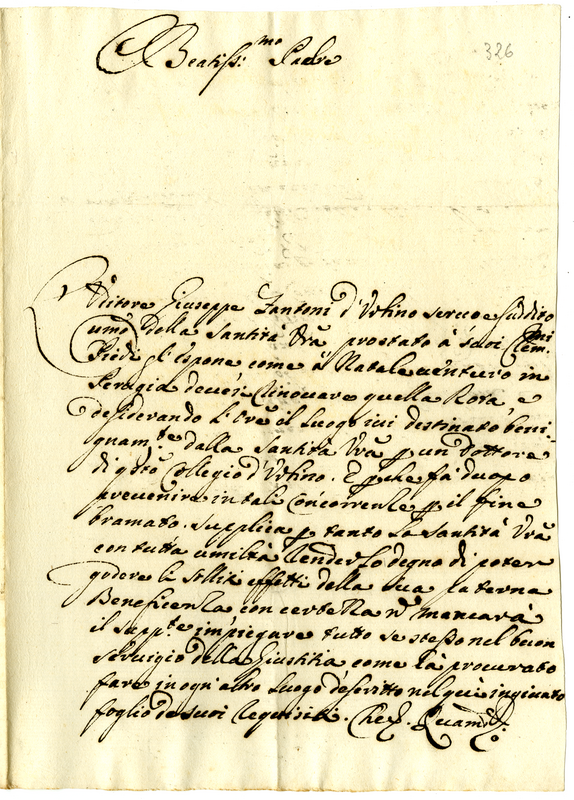 326
Beatiss: mo Padre
Giuseppe Fantoni d'Urbino servo e suddito
umo della Santità Vrã prostato à suoi Clem.mi
Piedi gl'espone come à Natale venturo in
Perugia deuesi rinouare quella Rota, e
desiderando l'Ore il luogo iui destinato beni-
gnam.te dalla Santità Vrã p un Dottore
di qsto Collegio d'Urbino. E pche fà duopo
preuenire in tali concorrenze p il fine
bramato. Supplica p tanto la Santità Vrã
con tutta umiltà renderlo degno di poter
godere li soliti effetti della sua Paterna
Beneficenza con certezza nõ mancarà
il supp.te impiegare tutto se stesso nel buon
seruigio della Giustitia come hà procurato
fare in ogn'altro luogo descritto nel quì ingiunto
foglio de suoi requisiti. Che